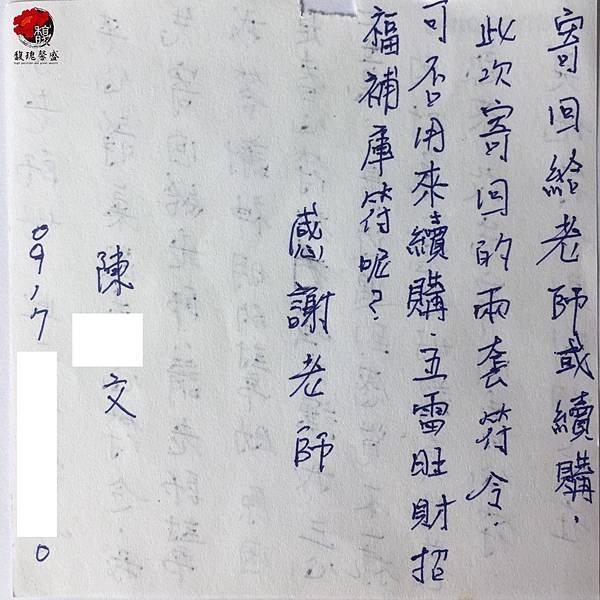 寄回給老師或續購，
此次寄回的兩套符令.
可否用來續購.五雷旺財招
福補庫符呢？
感謝老師
陳 文
0917 0
馥瑰馨盛